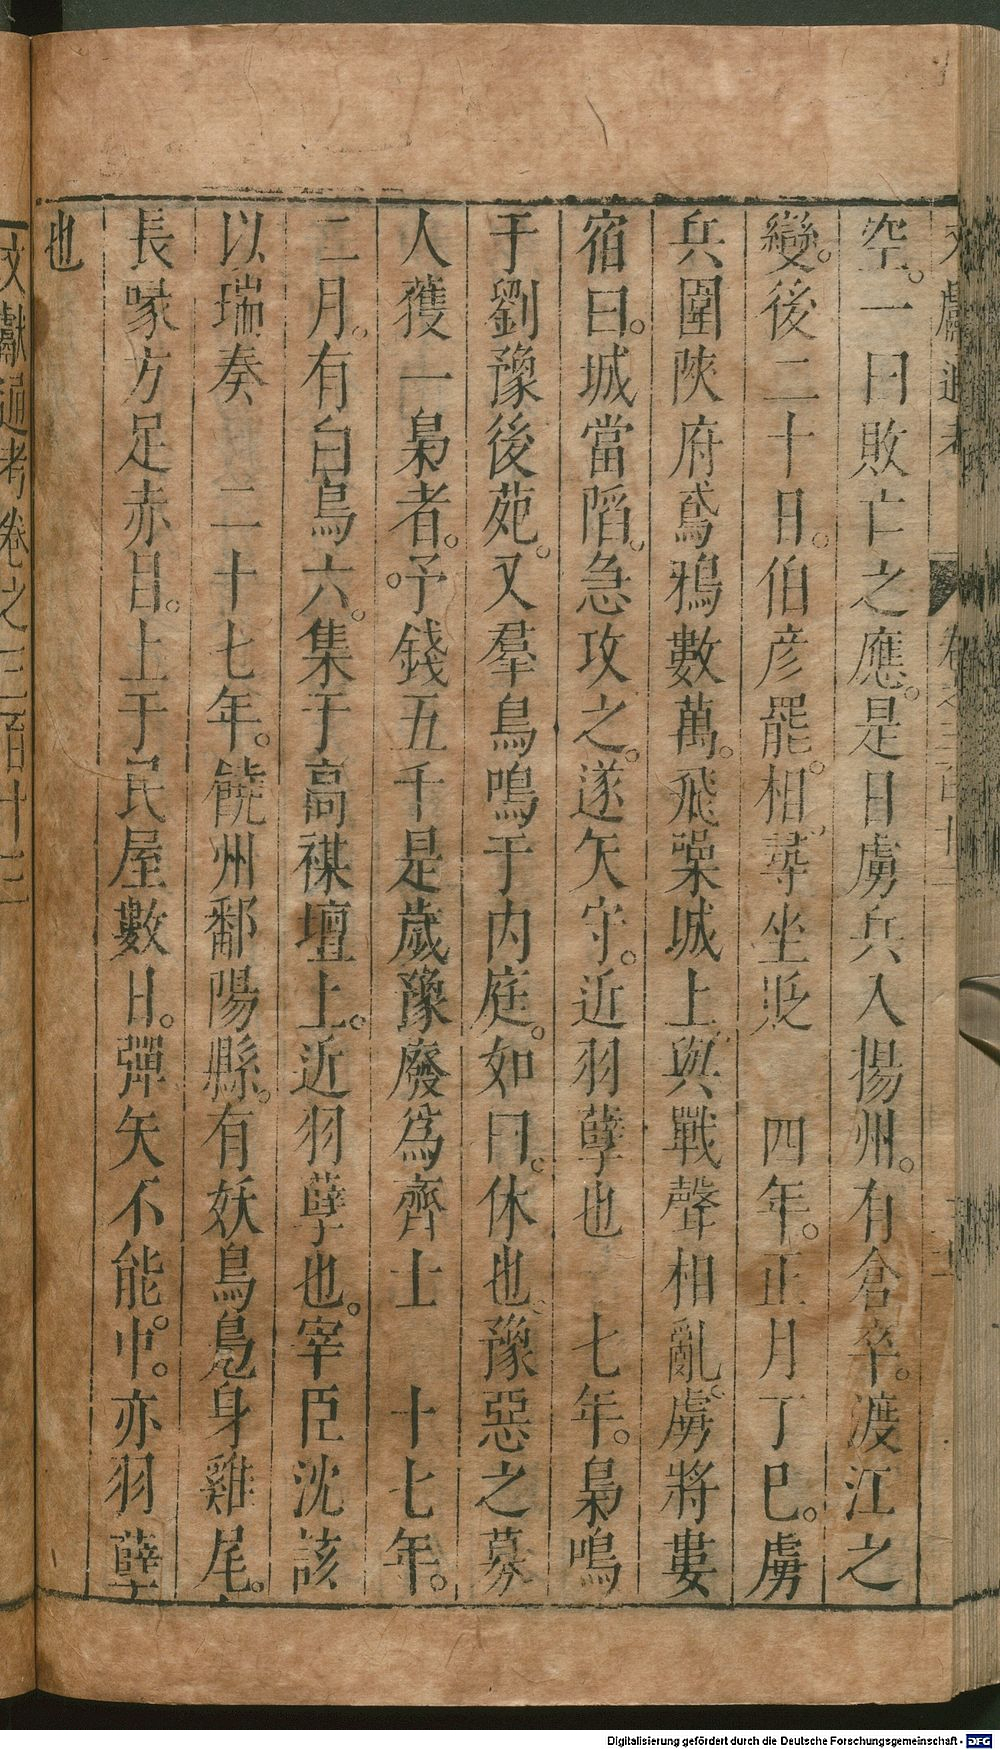 文獻通考 卷之三百十三
空。一曰敗亡之應。是日虜兵入揚州。有倉卒。渡江之
變。後二十日。伯彥罷相。尋坐貶 四年。正月丁巳。虜
兵圍陝府鳶鴉數萬。飛噪城上與戰聲相亂。虜將婁
宿曰。城當陷。急攻之。遂失守。近羽孽也 七年。梟鳴
于劉豫後苑。又羣鳥鳴于內庭。如曰。休也。豫惡之募
人獲一梟者。予錢五千是歲豫廢爲齊王 十七年。
二月。有白烏六。集于高禖壇上。近羽孽也。宰臣沈該
以瑞奏 二十七年。饒州鄱陽縣。有妖鳥鳧身雞尾。
長喙方足赤目。上于民屋數日。彈矢不能中。亦羽孽
也
文獻通考卷之三百十三
Digitalisierung gefördert durch die Deutsche Forschungsgemeinschaft - DFG